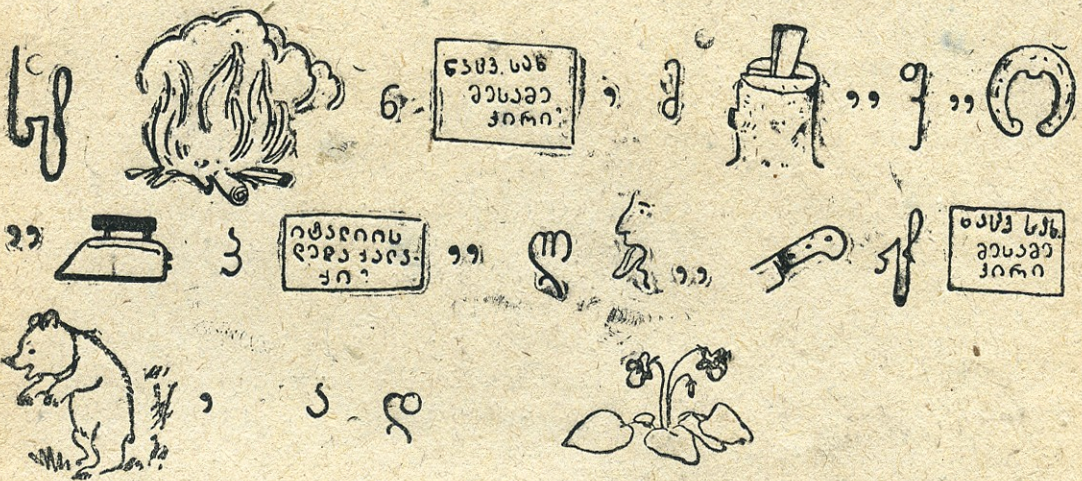 ნ ნაცვ. სახ
მესამე
პირი? , მ ,, ,,
,, იტალიის
დედაქალა-
ქი? ,, ლ ,, ნაცვ. სახ.
მესამე
პირი
, ა დ